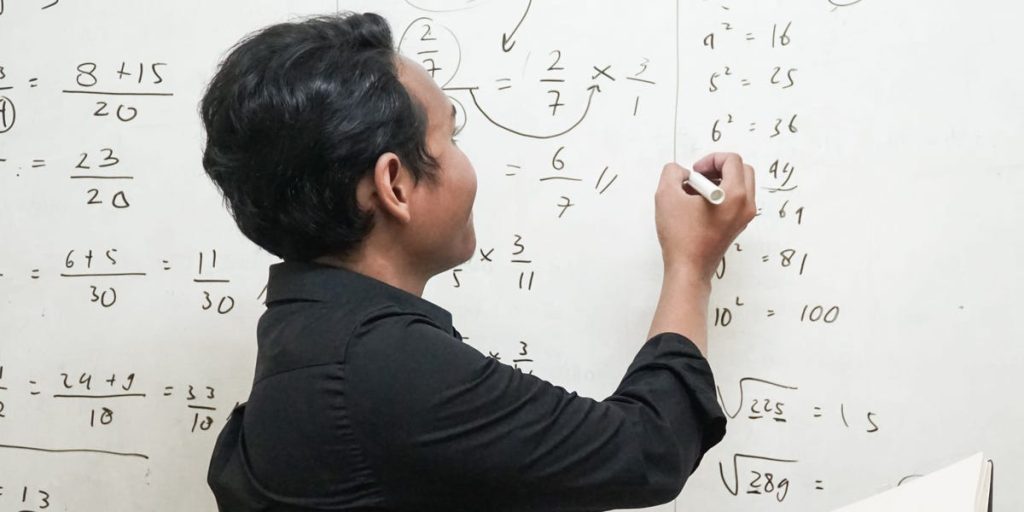 = 8 + 15 / 20
= 23 / 20
= 6 + 5 / 30 = 11 / 30
= 24 + 9 / 18 = 33 / 18
= 13
2/7 = 2/7 × 3/1
= 6/7 //
5 × 3/11
× 3
4² = 16
5² = 25
6² = 36
49
= 64
² = 81
10² = 100
√225 = 15
√289 =